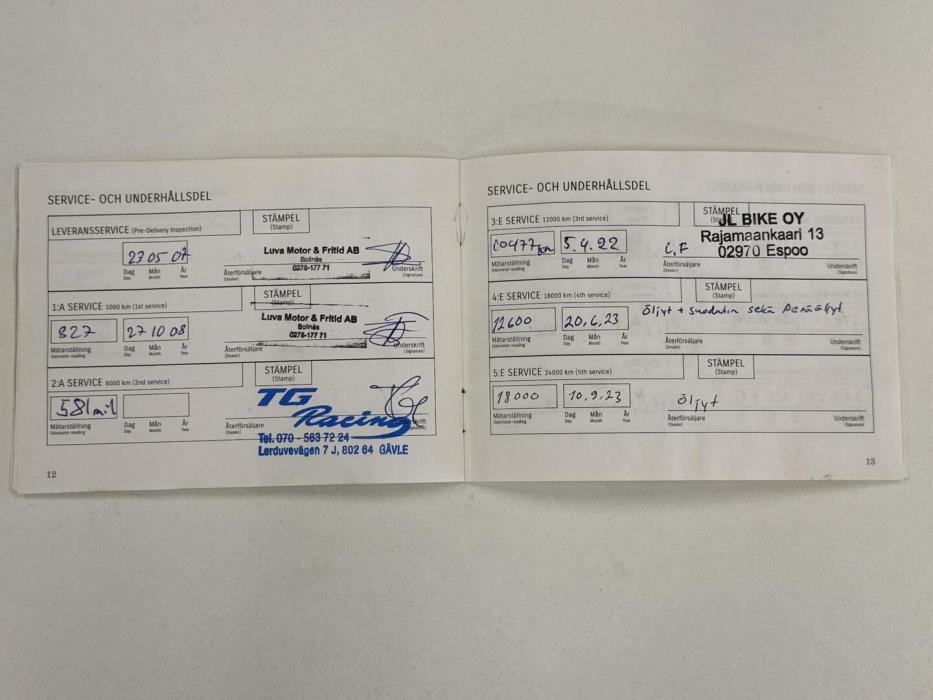 SERVICE- OCH UNDERHÅLLSDEL
LEVERANSSERVICE (Pre-Delivery Inspection)
STÄMPEL
27 05 07
Dag Mån År
Day Month Year
Luva Motor & Fritid AB
Bollnäs
0278-177 71
Återförsäljare
(Dealer)
Underskrift
(Signature)
1:A SERVICE 1000 km (1st service)
STÄMPEL
(Stamp)
827
27 10 08
Mätarställning
Odometer reading
Dag Mån År
Day Month Year
Luva Motor & Fritid AB
Bollnäs
0278-177 71
Återförsäljare
(Dealer)
Underskrift
(Signature)
2:A SERVICE 6000 km (2nd service)
STÄMPEL
(Stamp)
581 mil
Mätarställning
Odometer reading
Dag Mån År
Day Month Year
TG
Racing
Tel. 070 - 563 72 24
Lerduvevägen 7 J, 802 64 GÄVLE
Återförsäljare
(Dealer)
(Signature)
12
SERVICE- OCH UNDERHÅLLSDEL
3:E SERVICE 12000 km (3rd service)
STÄMPEL
10477 km
5.4.22
Mätarställning
Odometer reading
Dag Mån År
Day Month Year
JL BIKE OY
Rajamaankaari 13
02970 Espoo
Återförsäljare
(Dealer)
Underskrift
(Signature)
4:E SERVICE 18000 km (4th service)
STÄMPEL
(Stamp)
12600
20.6.23
Öljyt + suodatin sekä Peräöljyt
Mätarställning
Odometer reading
Dag Mån År
Day Month Year
Återförsäljare
(Dealer)
Underskrift
(Signature)
5:E SERVICE 24000 km (5th service)
STÄMPEL
(Stamp)
18000
10.9.23
Öljyt
Mätarställning
Odometer reading
Dag Mån År
Day Month Year
Återförsäljare
(Dealer)
Underskrift
(Signature)
13